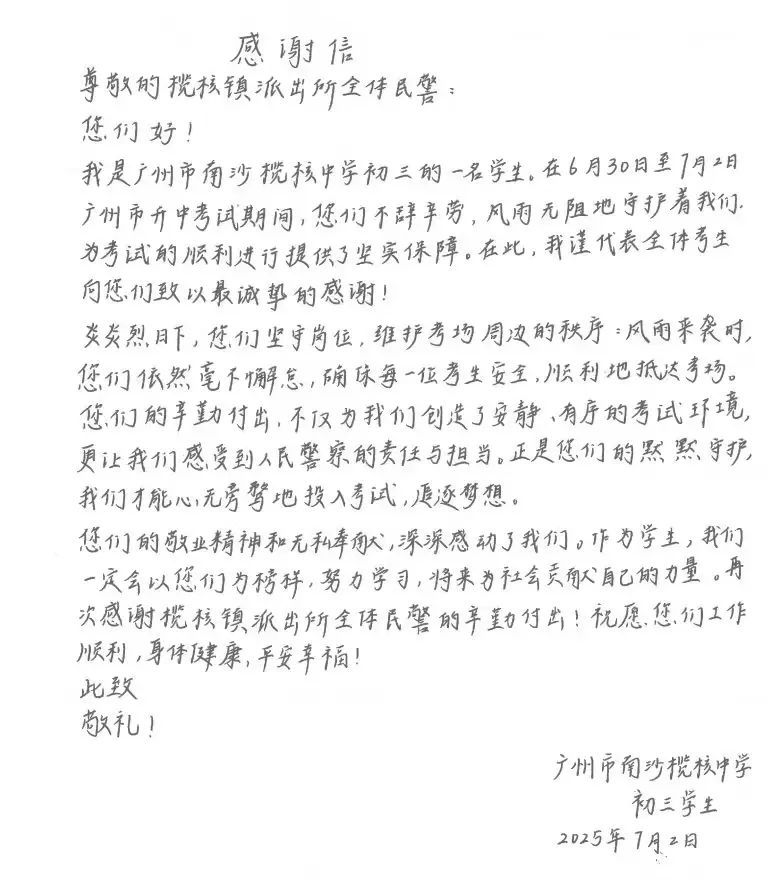 感谢信
尊敬的榄核镇派出所全体民警：
您们好！
我是广州市南沙榄核中学初三的一名学生。在6月30日至7月2日
广州市升中考试期间，您们不辞辛劳，风雨无阻地守护着我们，
为考试的顺利进行提供了坚实保障。在此，我谨代表全体考生
向您们致以最诚挚的感谢！
炎炎烈日下，您们坚守岗位，维护考场周边的秩序；风雨来袭时，
您们依然毫不懈怠，确保每一位考生安全，顺利地抵达考场。
您们的辛勤付出，不仅为我们创造了安静、有序的考试环境，
更让我们感受到人民警察的责任与担当。正是您们的默默守护，
我们才能心无旁骛地投入考试，追逐梦想。
您们的敬业精神和无私奉献，深深感动了我们。作为学生，我们
一定会以您们为榜样，努力学习，将来为社会贡献自己的力量。再
次感谢榄核镇派出所全体民警的辛勤付出！祝愿您们工作
顺利，身体健康，平安幸福！
此致
敬礼！
广州市南沙榄核中学
初三学生
2025年7月2日